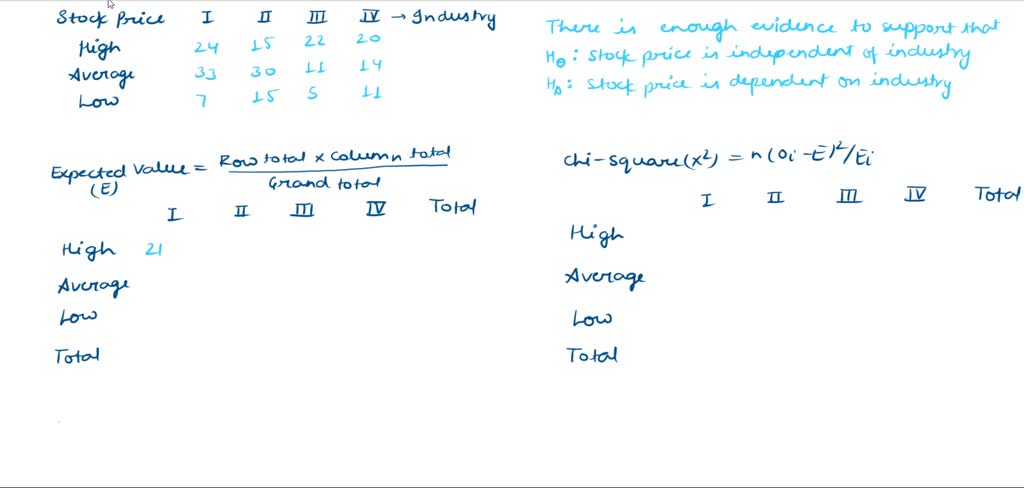 Stock Price I II III IV → Industry
High 24 15 22 20
Average 33 30 11 14
Low 7 15 5 11
There is enough evidence to support that
H₀: Stock price is independent of industry
Hₐ: Stock price is dependent on industry
Expected value (E) = Row total × Column total / Grand total
I II III IV Total
High 21
Average
Low
Total
Chi-square(x²) = n(Oi-E)²/Ei
I II III IV Total
High
Average
Low
Total